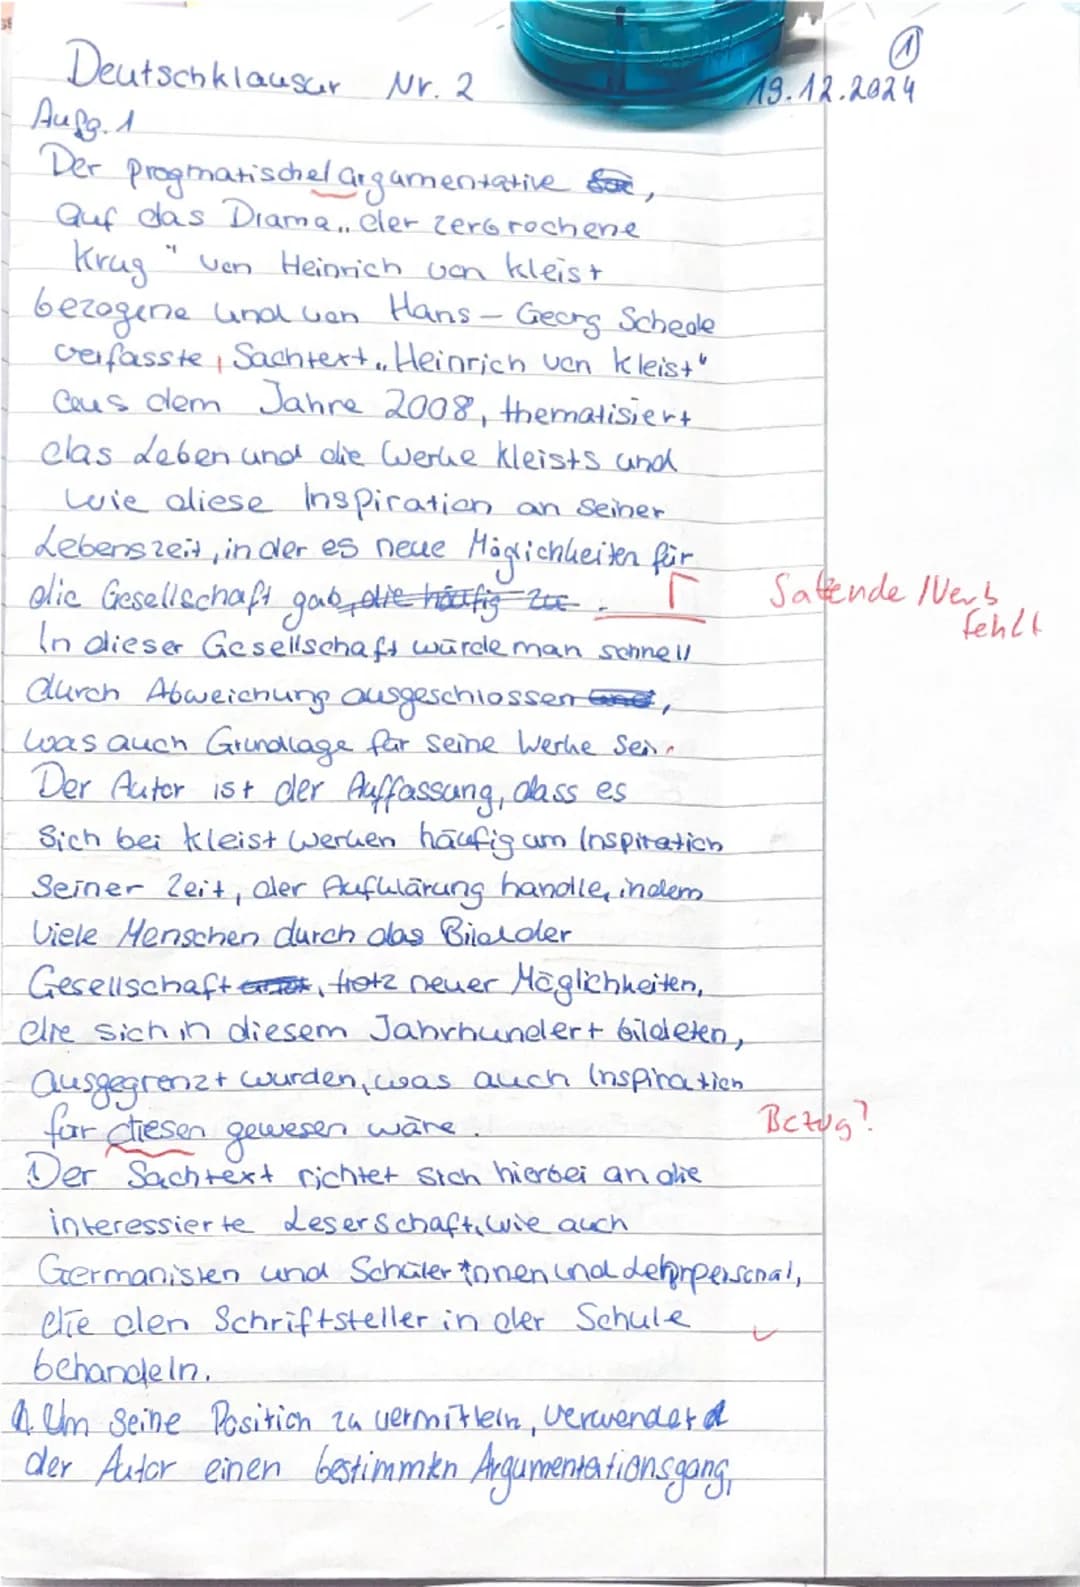 ①
Deutschklausur Nr. 2 19.12.2024
Aufg. 1
Der pragmatische/argumentative ,
auf das Drama „der zerbrochene
Krug" von Heinrich von Kleist
bezogene und von Hans-Georg Schede
verfasste, Sachtext „Heinrich von Kleist"
aus dem Jahre 2008, thematisiert
das Leben und die Werke Kleists und
wie diese Inspiration an seiner
Lebenszeit, in der es neue Möglichkeiten für
die Gesellschaft gab, die häufig zu . Satzende / Verb
fehlt
In dieser Gesellschaft würde man schnell
durch Abweichung ausgeschlossen und,
was auch Grundlage für seine Werke sei.
Der Autor ist der Auffassung, dass es
sich bei Kleist Werken häufig um Inspiration
seiner Zeit, der Aufklärung handle, indem
viele Menschen durch das Bild der
Gesellschaft , trotz neuer Möglichkeiten,
die sich in diesem Jahrhundert bildeten,
ausgegrenzt wurden, was auch Inspiration
für diesen gewesen wäre. Bezug?
Der Sachtext richtet sich hierbei an die
interessierte Leserschaft, wie auch
Germanisten und Schüler*innen und Lehrpersonal,
die den Schriftsteller in der Schule
behandeln.
1. Um seine Position zu vermitteln, verwendet
der Autor einen bestimmten Argumentationsgang,